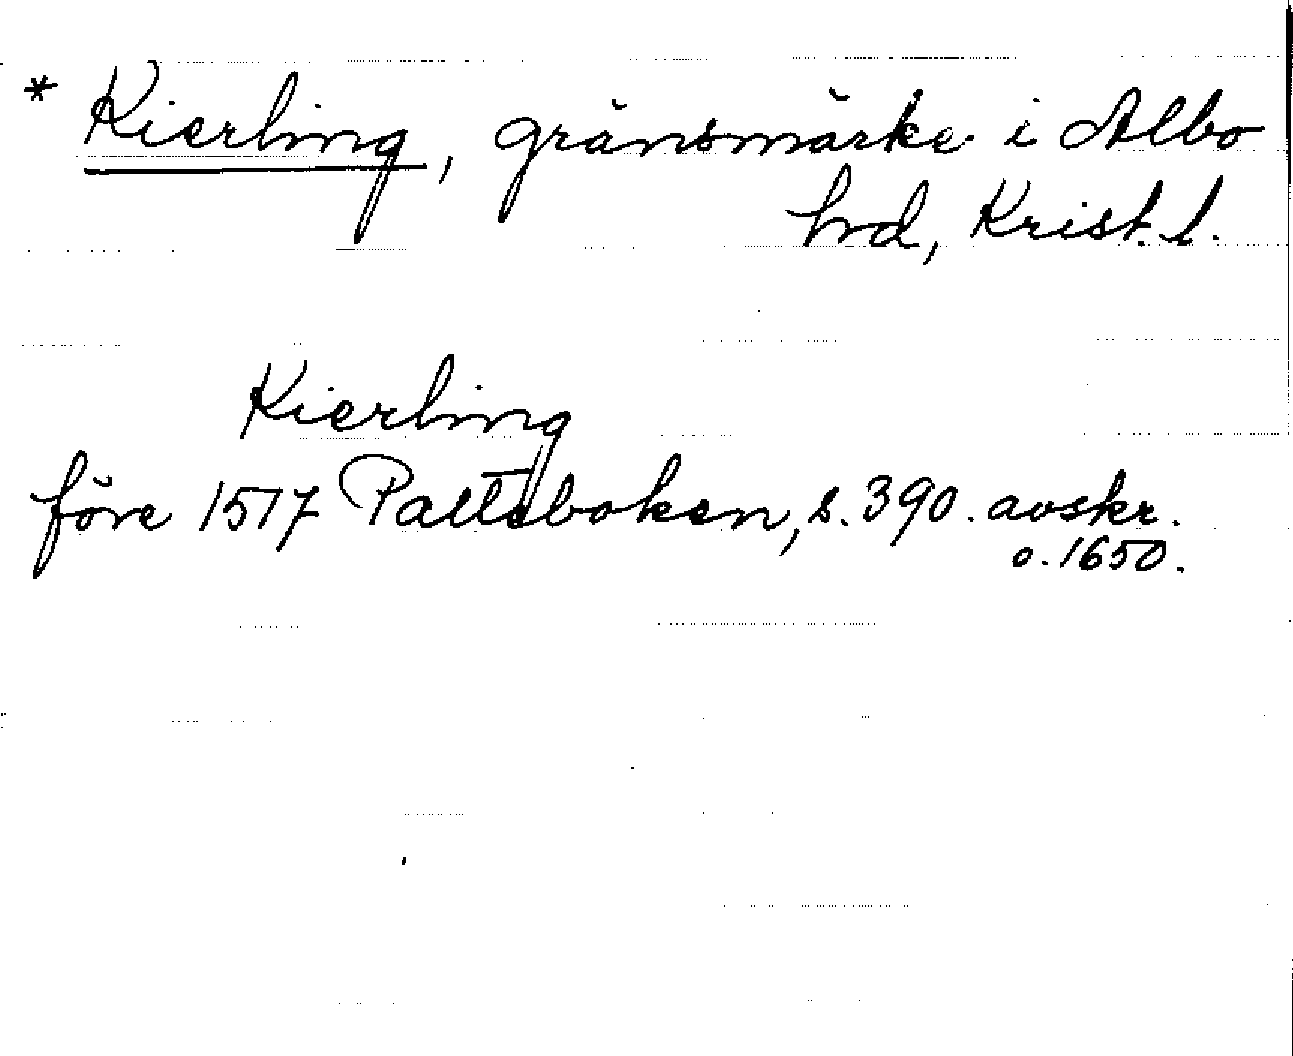 * Kierling, gränsmärke i Albo
hrd, Krist. l.
Kierling
före 1517 Palteboken, s. 390. avskr.
o. 1650.